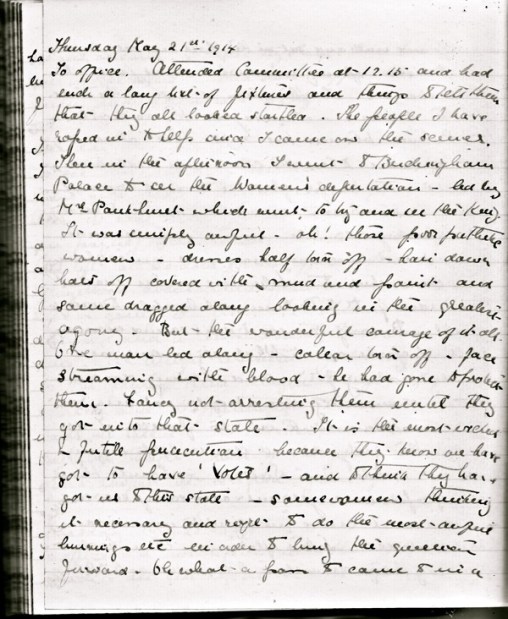 Thursday May 21st 1914
To office. Attended Committee at 12.15 and had
such a long list of fixtures and things to tell them
that they all looked startled. The people I have
roped in to help since I came on the scenes.
Then in the afternoon I went to Buckingham
Palace to see the Women's deputation - led by
Mrs Pankhurst which went to try and see the King.
It was simply awful - oh! those poor pathetic
women - dresses half torn off - hair down
hats off covered with mud and paint and
some dragged along looking in the greatest
agony. But the wonderful courage of it all.
One man led along - collar torn off - face
streaming with blood - he had gone to protect
them. Fancy not arresting them until they
got into that state. It is the most wicked
& futile persecution because they know we have
got to have 'Votes' - and to think they have
got us to this state - some women thinking
it necessary and right to do the most awful
burnings etc in order to bring the question
forward. Oh what a pass to come to in a